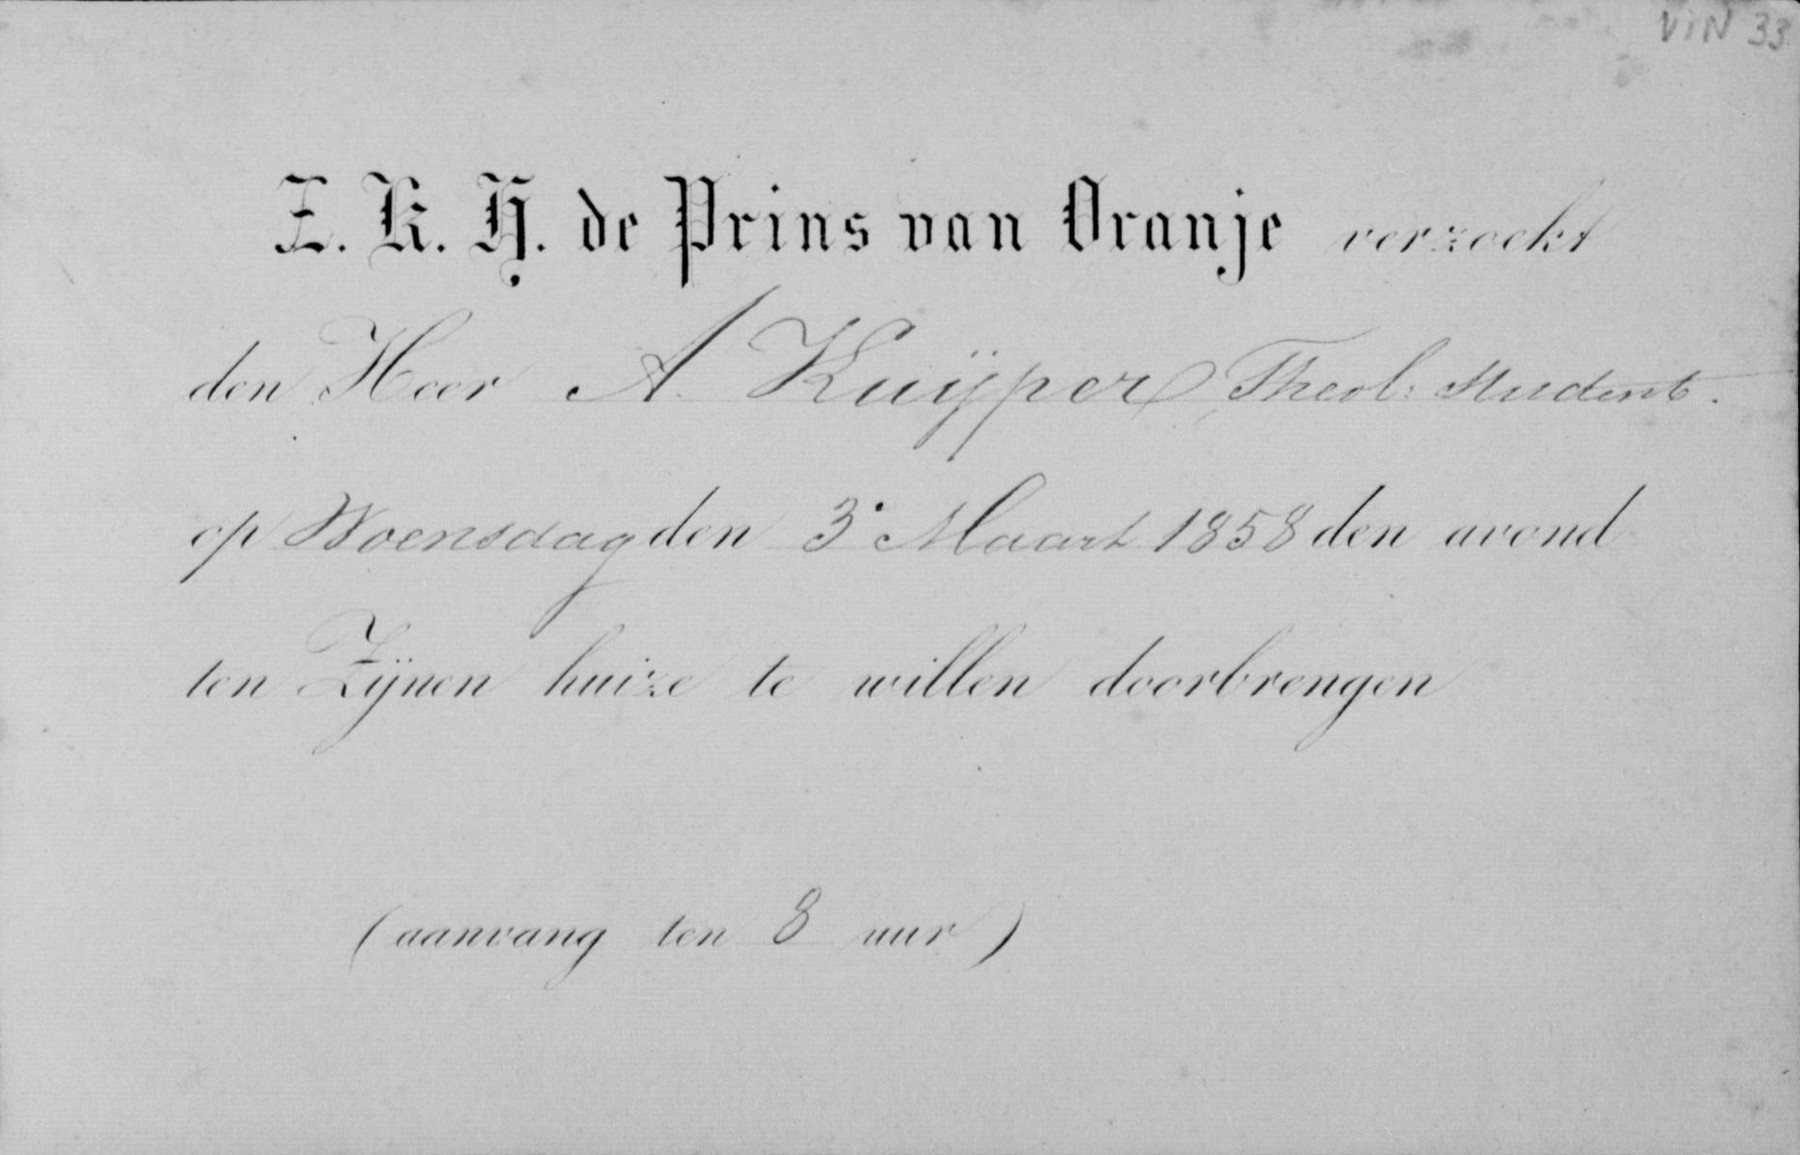 VIN 33
Z. K. H. de Prins van Oranje verzoekt
den Heer A. Kuÿper, Theol: Student.
op Woensdag den 3e Maart 1858 den avond
ten Zÿnen huize te willen doorbrengen
(aanvang ten 8 uur)